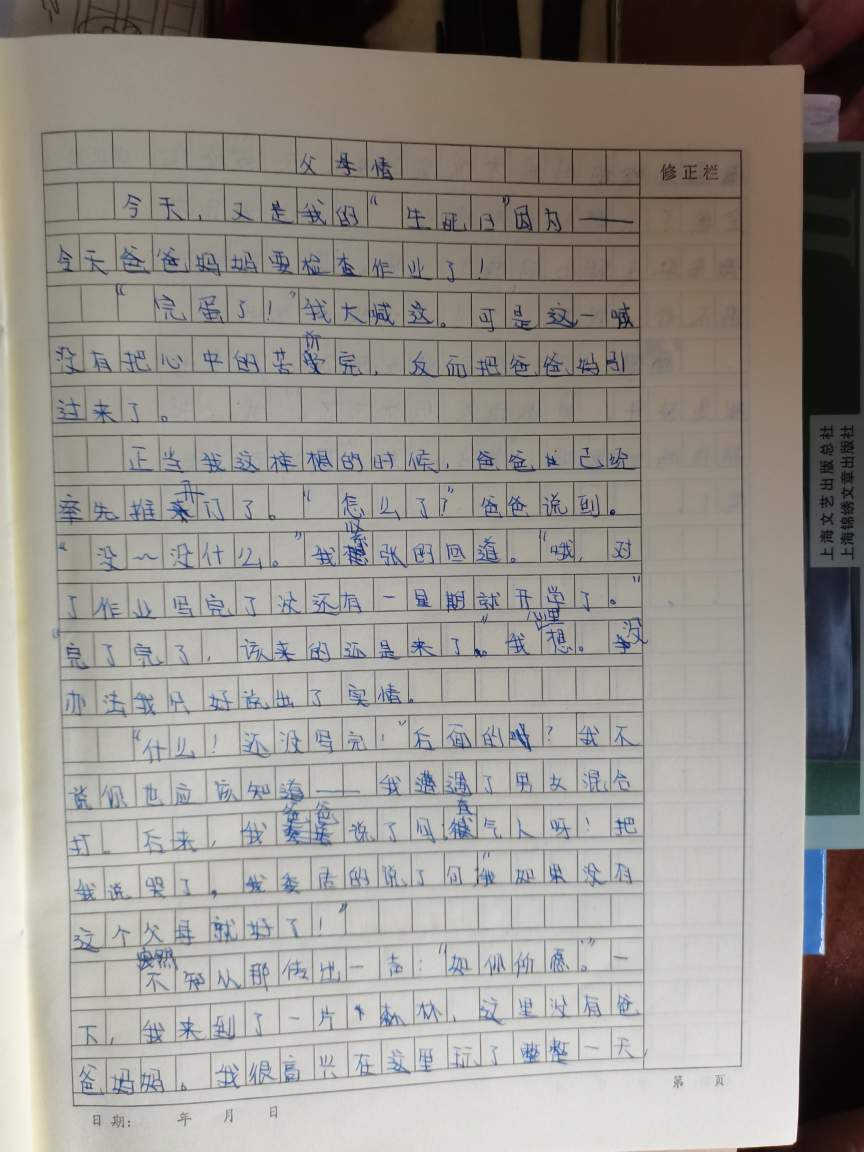 父母情
修正栏
今天，又是我的“生死日”因为——
今天爸爸妈妈要检查作业了！
“完蛋了！”我大喊这。可是这一喊
没有把心中的苦所受完，反而把爸爸妈引
过来了。
正当我这样想的时候，爸爸已经
率先推开门了。“怎么了？”爸爸说到。
“没～没什么。”我紧张的回道。“哦，对
了作业写完了没还有一星期就开学了。”
完了完了，该来的还是来了。”我心里想。没
办法我只好说出了实情。
“什么！还没写完！”后面的呢？我不
说你也应该知道——我遭遇了男女混合
打。后来，我爸爸说了句真气人呀！把
我说哭了，我委屈的说了句“如果没有
这个父母就好了！”
突然不知从那传出一声：“如你所愿。”一
下，我来到了一片森林，这里没有爸
爸妈妈。我很高兴在这里玩了整整一天，
第 页
日期： 年 月 日
上海文艺出版总社
上海锦绣文章出版社